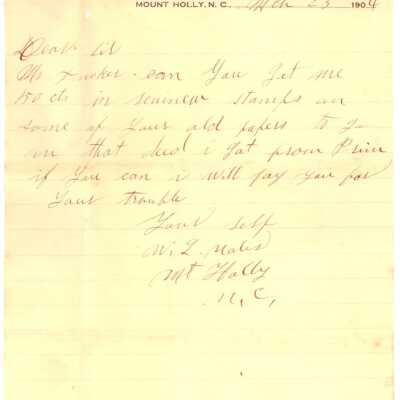 MOUNT HOLLY, N. C., Mch 23 1904
Dear Sir
Mr Tucker. can You Get me
50 cts in revenew stamps on
some of Your old papers to go
on that deed i Got from Prim
if You can i will pay you for
Your trouble
Your self
W. L.
Mt Holly
N, C,